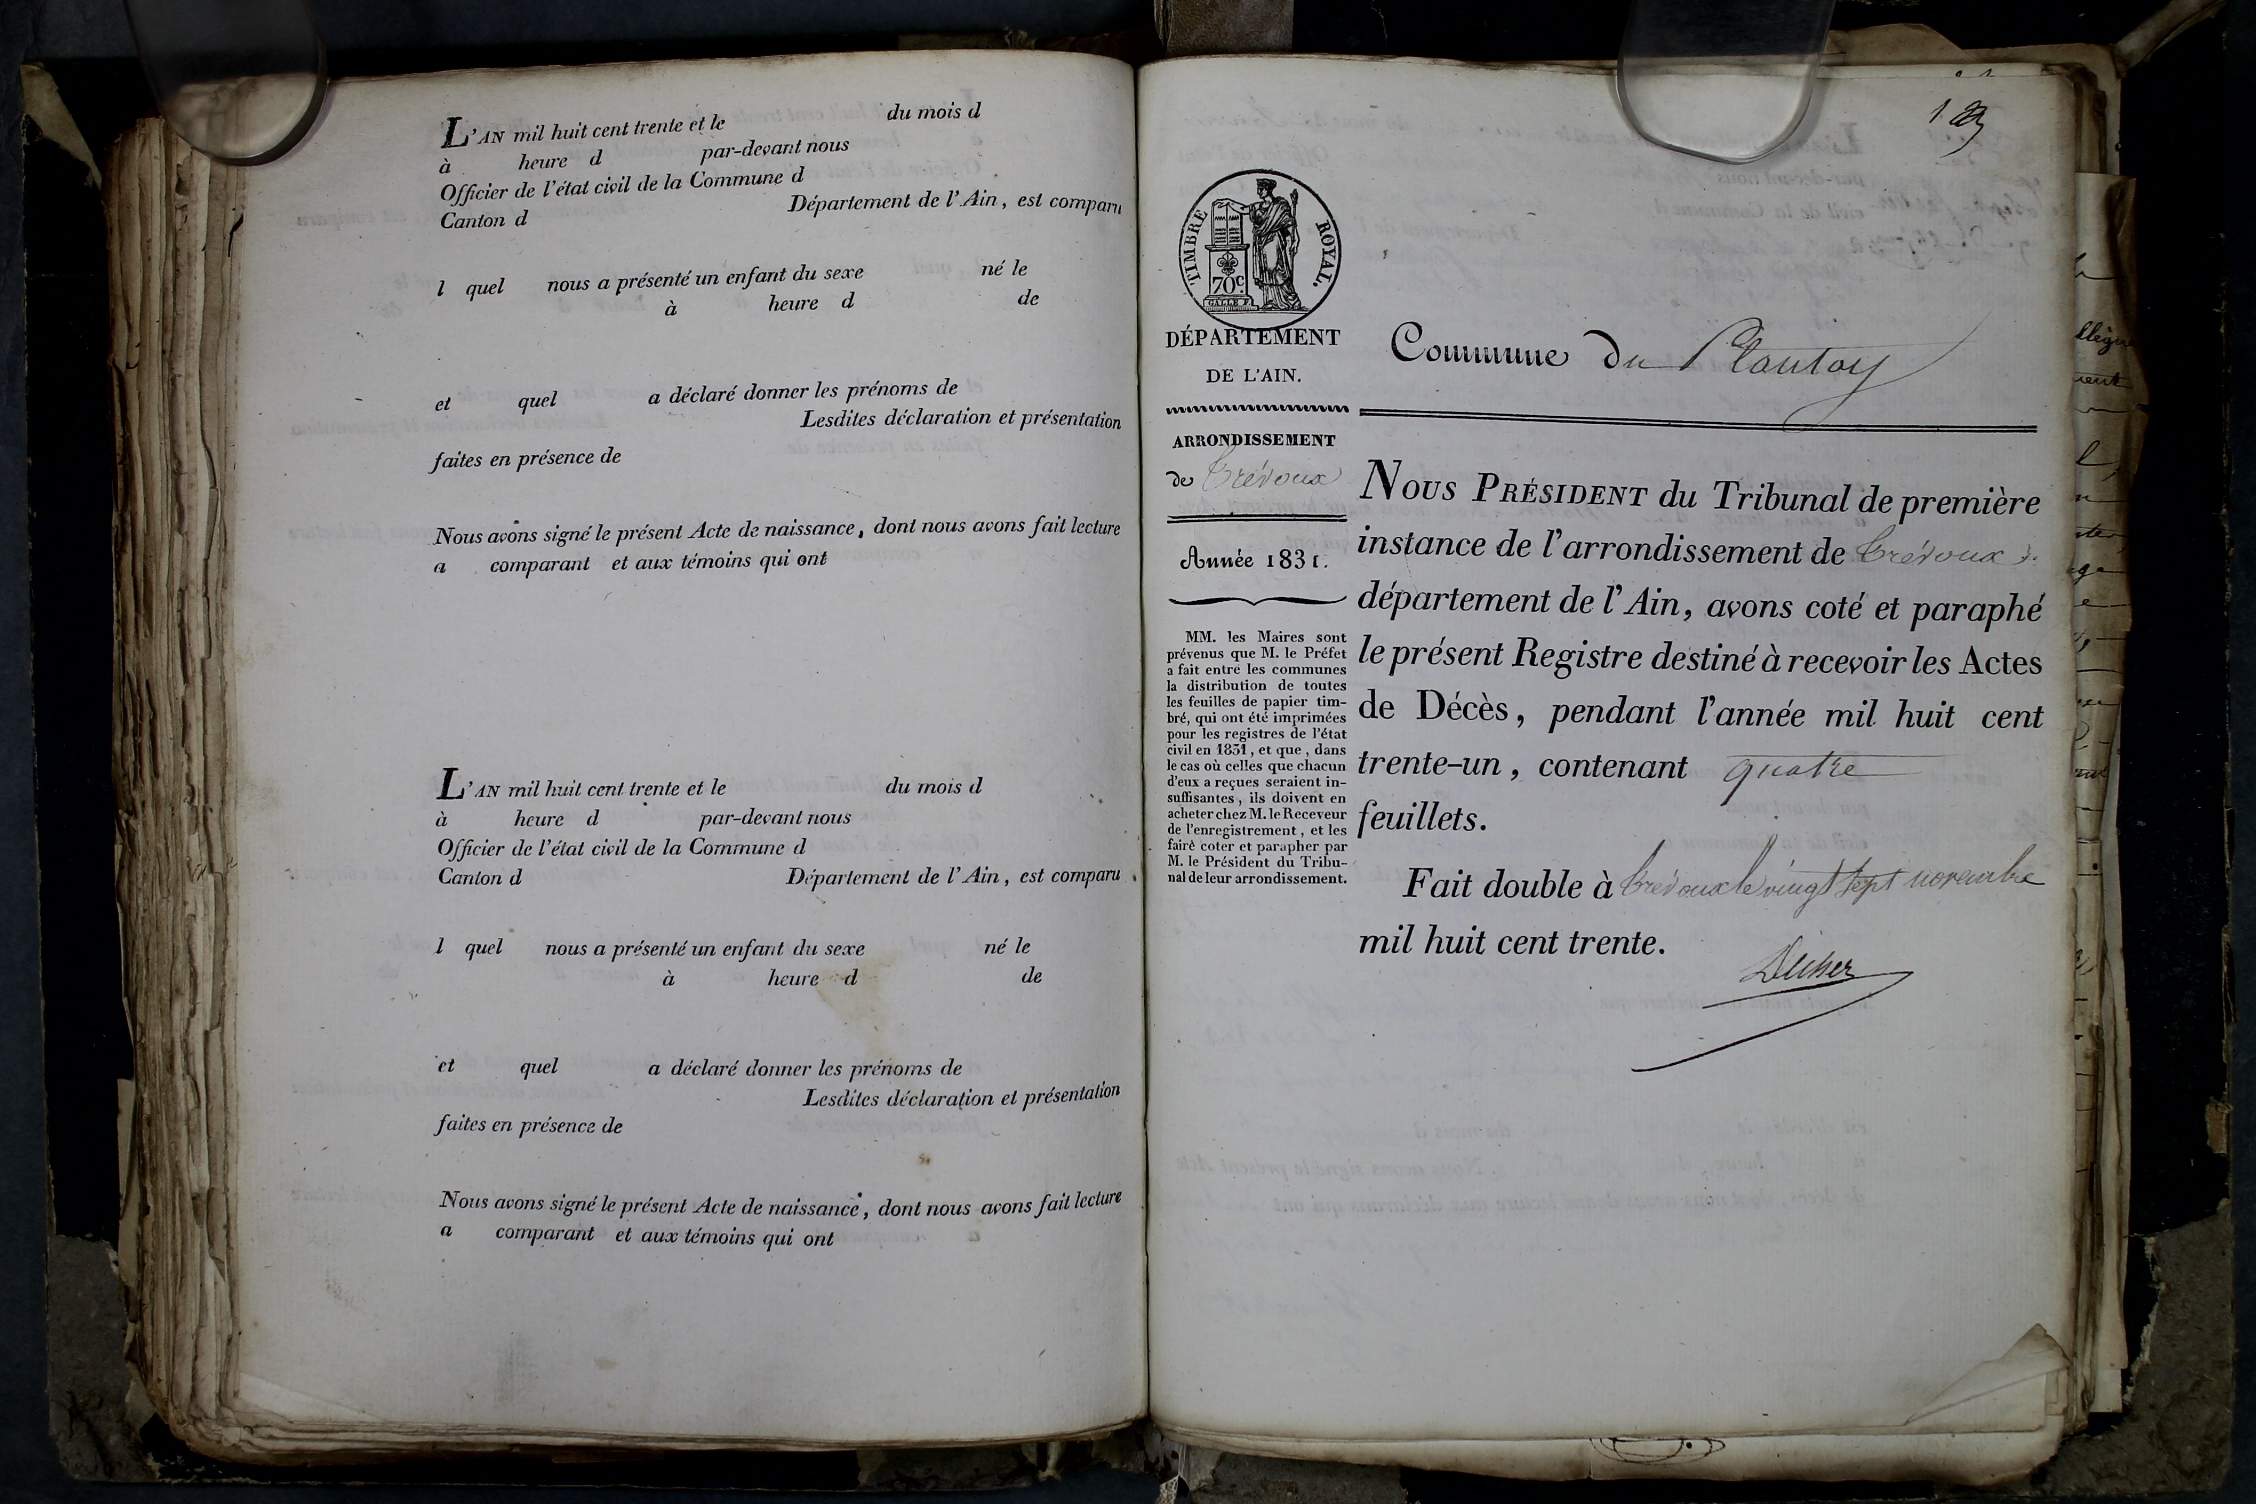 L'AN mil huit cent trente et le du mois d
à heure d par-devant nous
Officier de l'état civil de la Commune d
Canton d Département de l'Ain, est comparu
l quel nous a présenté un enfant du sexe né le
à heure d de
et quel a déclaré donner les prénoms de
Lesdites déclaration et présentation
faites en présence de
Nous avons signé le présent Acte de naissance, dont nous avons fait lecture
a comparant et aux témoins qui ont
L'AN mil huit cent trente et le du mois d
à heure d par-devant nous
Officier de l'état civil de la Commune d
Canton d Département de l'Ain, est comparu
l quel nous a présenté un enfant du sexe né le
à heure d de
et quel a déclaré donner les prénoms de
Lesdites déclaration et présentation
faites en présence de
Nous avons signé le présent Acte de naissance, dont nous avons fait lecture
a comparant et aux témoins qui ont
TIMBRE ROYAL.
70c.
GALLE F.
DÉPARTEMENT
DE L'AIN.
ARRONDISSEMENT
de Trévoux
Année 1831.
MM. les Maires sont
prévenus que M. le Préfet
a fait entre les communes
la distribution de toutes
les feuilles de papier tim-
bré, qui ont été imprimées
pour les registres de l'état
civil en 1831, et que, dans
le cas où celles que chacun
d'eux a reçues seraient in-
suffisantes, ils doivent en
acheter chez M. le Receveur
de l'enregistrement, et les
faire coter et parapher par
M. le Président du Tribu-
nal de leur arrondissement.
Commune du Plantay
NOUS PRÉSIDENT du Tribunal de première
instance de l'arrondissement de Trévoux
département de l'Ain, avons coté et paraphé
le présent Registre destiné à recevoir les Actes
de Décès, pendant l'année mil huit cent
trente-un, contenant quatre
feuillets.
Fait double à Trévoux le vingt sept novembre
mil huit cent trente.